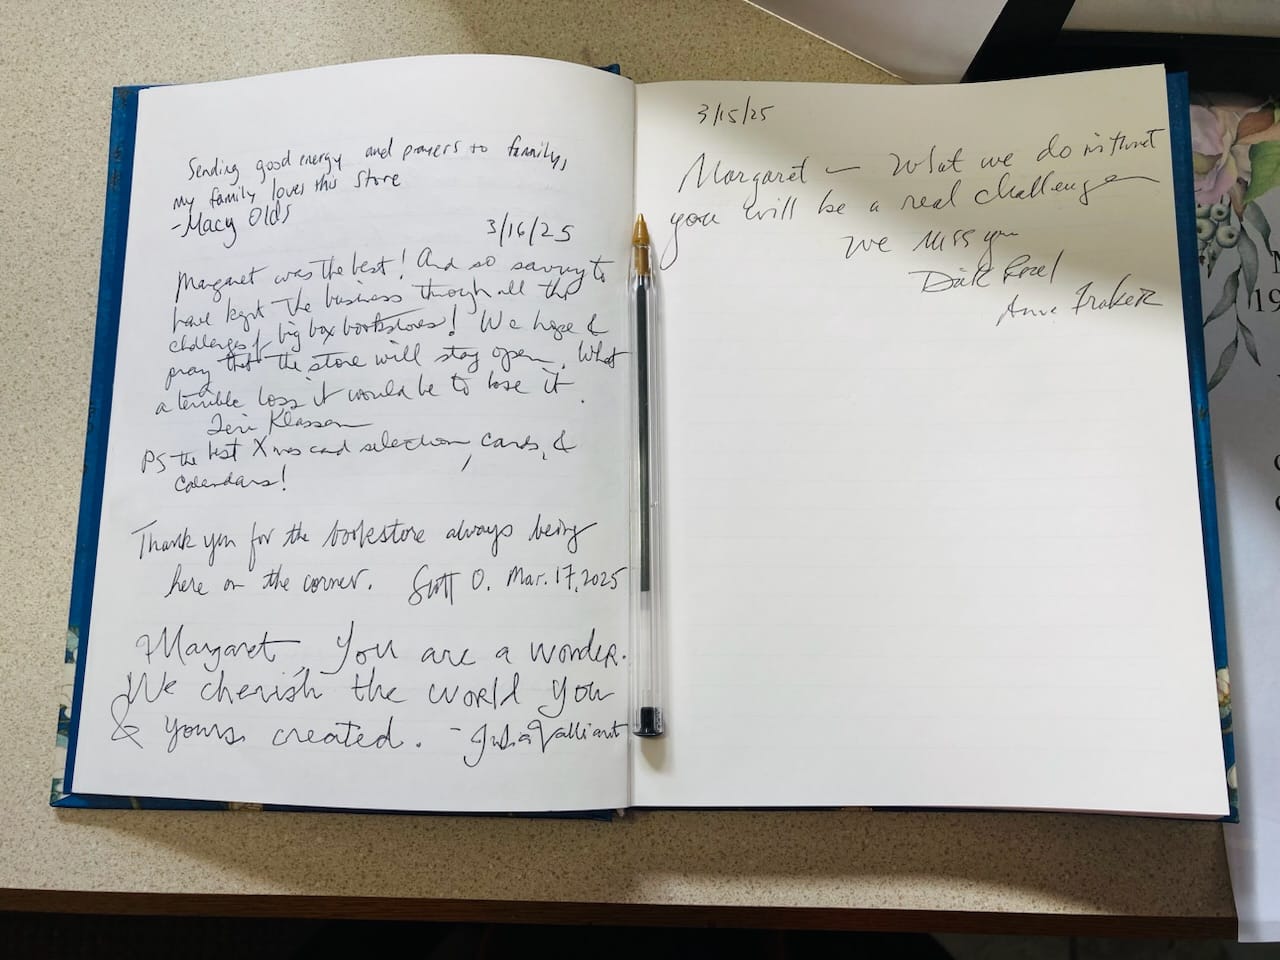 Sending good energy and prayers to family,
my family loves this store
-Macy Olds
3/16/25
Margaret was the best! And so savvy to
have kept the business through all the
challenges of big box bookstores! We hope &
pray that the store will stay open. What
a terrible loss it would be to lose it.
Teri Klassen
PS the best Xmas card selection, cards, &
calendars!
Thank you for the bookstore always being
here on the corner. Scott O. Mar. 17, 2025
Margaret, You are a wonder.
We cherish the world you
& yours created. -Julia Valliant
3/15/25
Margaret — What we do without
you will be a real challenge
we miss you
Dick
Anne
19